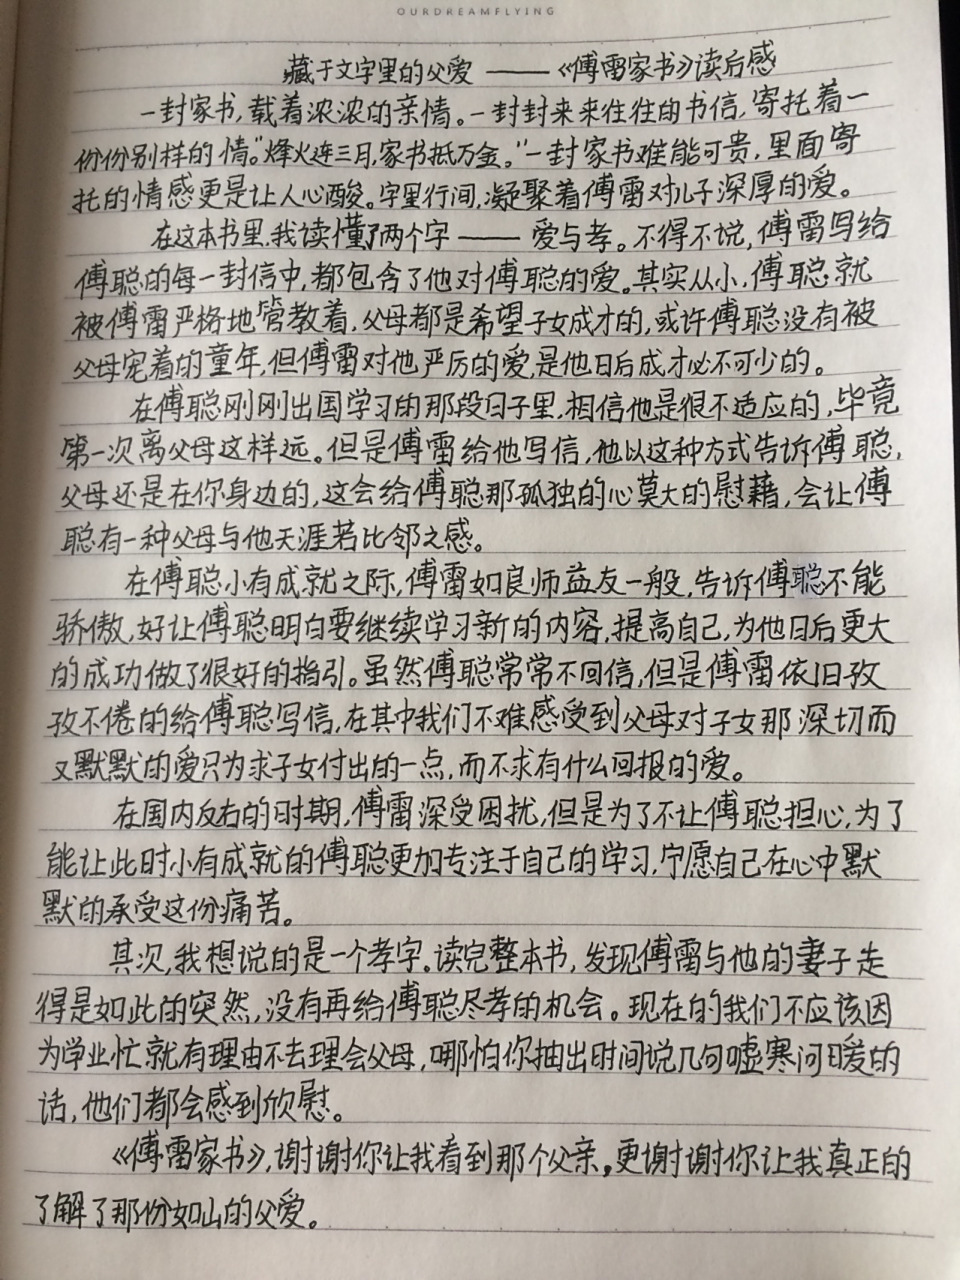 OURDREAMFLYING
藏于文字里的父爱 ——《傅雷家书》读后感
一封家书,载着浓浓的亲情。一封封来来往往的书信,寄托着一
份份别样的情。“烽火连三月,家书抵万金。”一封家书难能可贵,里面寄
托的情感更是让人心酸。字里行间,凝聚着傅雷对儿子深厚的爱。
在这本书里,我读懂了两个字 —— 爱与孝。不得不说,傅雷写给
傅聪的每一封信中,都包含了他对傅聪的爱。其实从小,傅聪就
被傅雷严格地管教着,父母都是希望子女成才的,或许傅聪没有被
父母宠着的童年,但傅雷对他严厉的爱,是他日后成才必不可少的。
在傅聪刚刚出国学习的那段日子里,相信他是很不适应的,毕竟
第一次离父母这样远。但是傅雷给他写信,他以这种方式告诉傅聪,
父母还是在你身边的,这会给傅聪那孤独的心莫大的慰藉,会让傅
聪有一种父母与他天涯若比邻之感。
在傅聪小有成就之际,傅雷如良师益友一般,告诉傅聪不能
骄傲,好让傅聪明白要继续学习新的内容,提高自己,为他日后更大
的成功做了很好的指引。虽然傅聪常常不回信,但是傅雷依旧孜
孜不倦的给傅聪写信,在其中我们不难感受到父母对子女那深切而
又默默的爱只为求子女付出的一点,而不求有什么回报的爱。
在国内反右的时期,傅雷深受困扰,但是为了不让傅聪担心,为了
能让此时小有成就的傅聪更加专注于自己的学习,宁愿自己在心中默
默的承受这份痛苦。
其次,我想说的是一个孝字。读完整本书,发现傅雷与他的妻子走
得是如此的突然,没有再给傅聪尽孝的机会。现在的我们不应该因
为学业忙就有理由不去理会父母,哪怕你抽出时间说几句嘘寒问暖的
话,他们都会感到欣慰。
《傅雷家书》,谢谢你让我看到那个父亲,更谢谢你让我真正的
了解了那份如山的父爱。